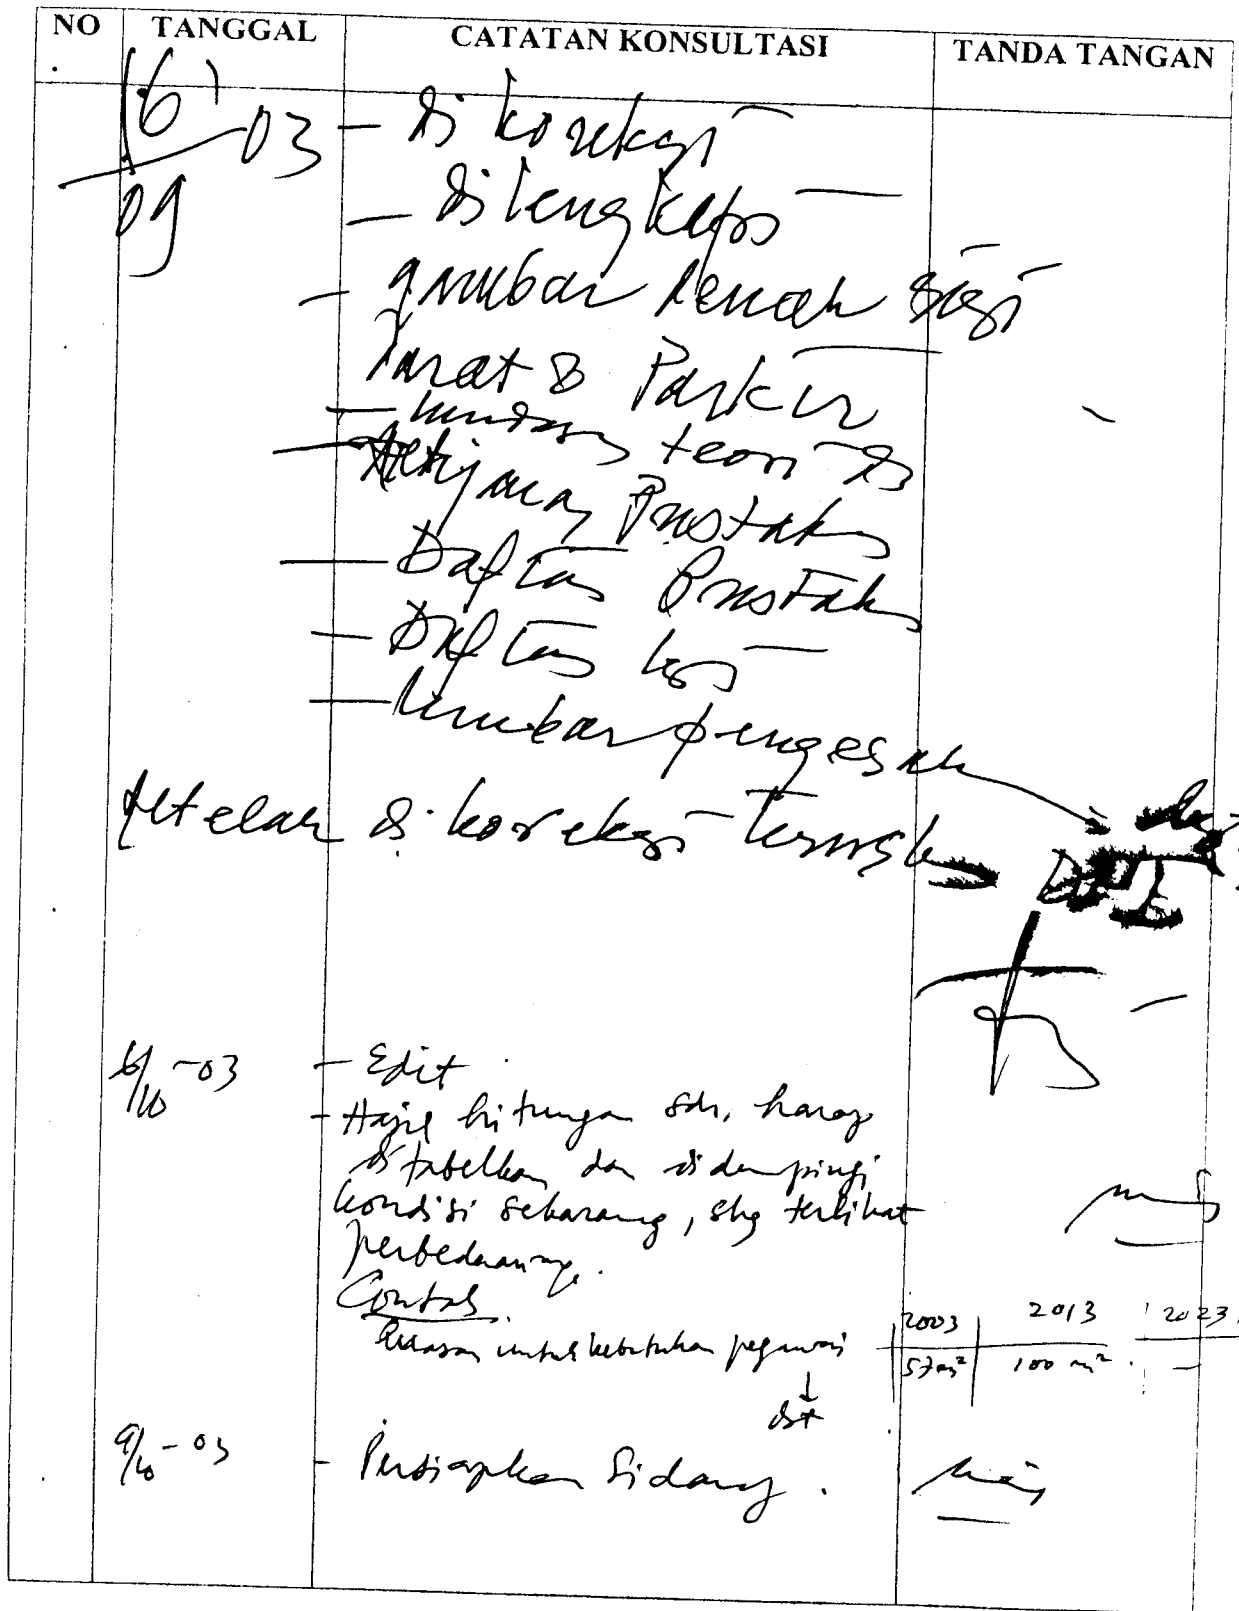 NO TANGGAL CATATAN KONSULTASI TANDA TANGAN
16/09 03 - dikoreksi
- dilengkapi
- gambar denah sisi
darat & Parkir
- landasan teori &
tinjauan Pustaka
- Daftar Pustaka
- Daftar Isi
- lembar pengesah
setelah dikoreksi
6/10-03 - Edit
- Hasil hitungan sdr. harap
ditabelkan dan didampingi
kondisi sekarang, shg terlihat
perbedaannya.
Contoh
luasan untuk kebutuhan pegawai 2003 2013 2023
57 m² 100 m² -
dst
9/10-03 - Persiapkan Sidang.